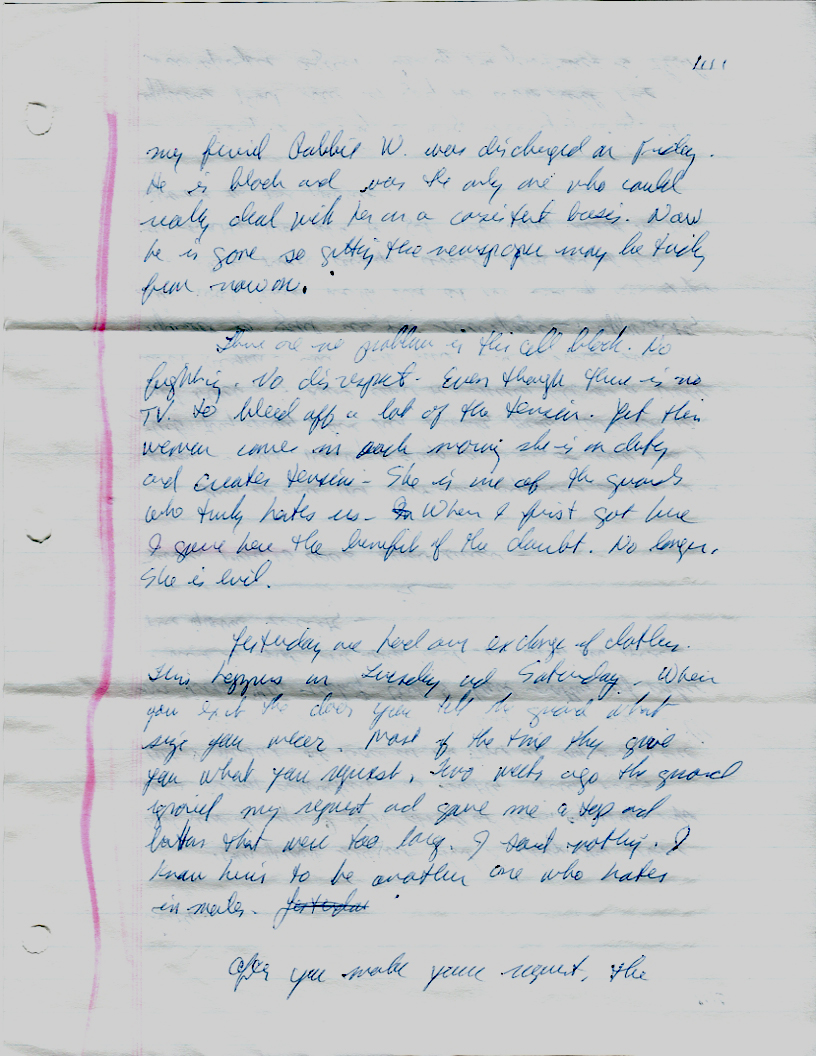 my friend Robbie W. was discharged on Friday.
He is black and was the only one who could
really deal with her on a consistent basis. Now
he is gone so getting the newspaper may be tricky
from now on.
There are no problem in this cell block. No
fighting. No disrespect. Even though there is no
TV to bleed off a lot of the tension. Yet this
woman comes in each morning she is on duty
and creates tension - She is one of the guards
who truly hates us - When I first got here
I gave her the benefit of the doubt. No longer.
She is evil.
Yesterday we had our exchange of clothes.
This happens on Tuesday and Saturday. When
you exit the door you tell the guard what
size you wear. Most of the time they give
you what you request. Two weeks ago the guard
ignored my request and gave me a top and
bottom that were too long. I said nothing. I
know him to be another one who hates
inmates. Yesterday
After you make your request, the